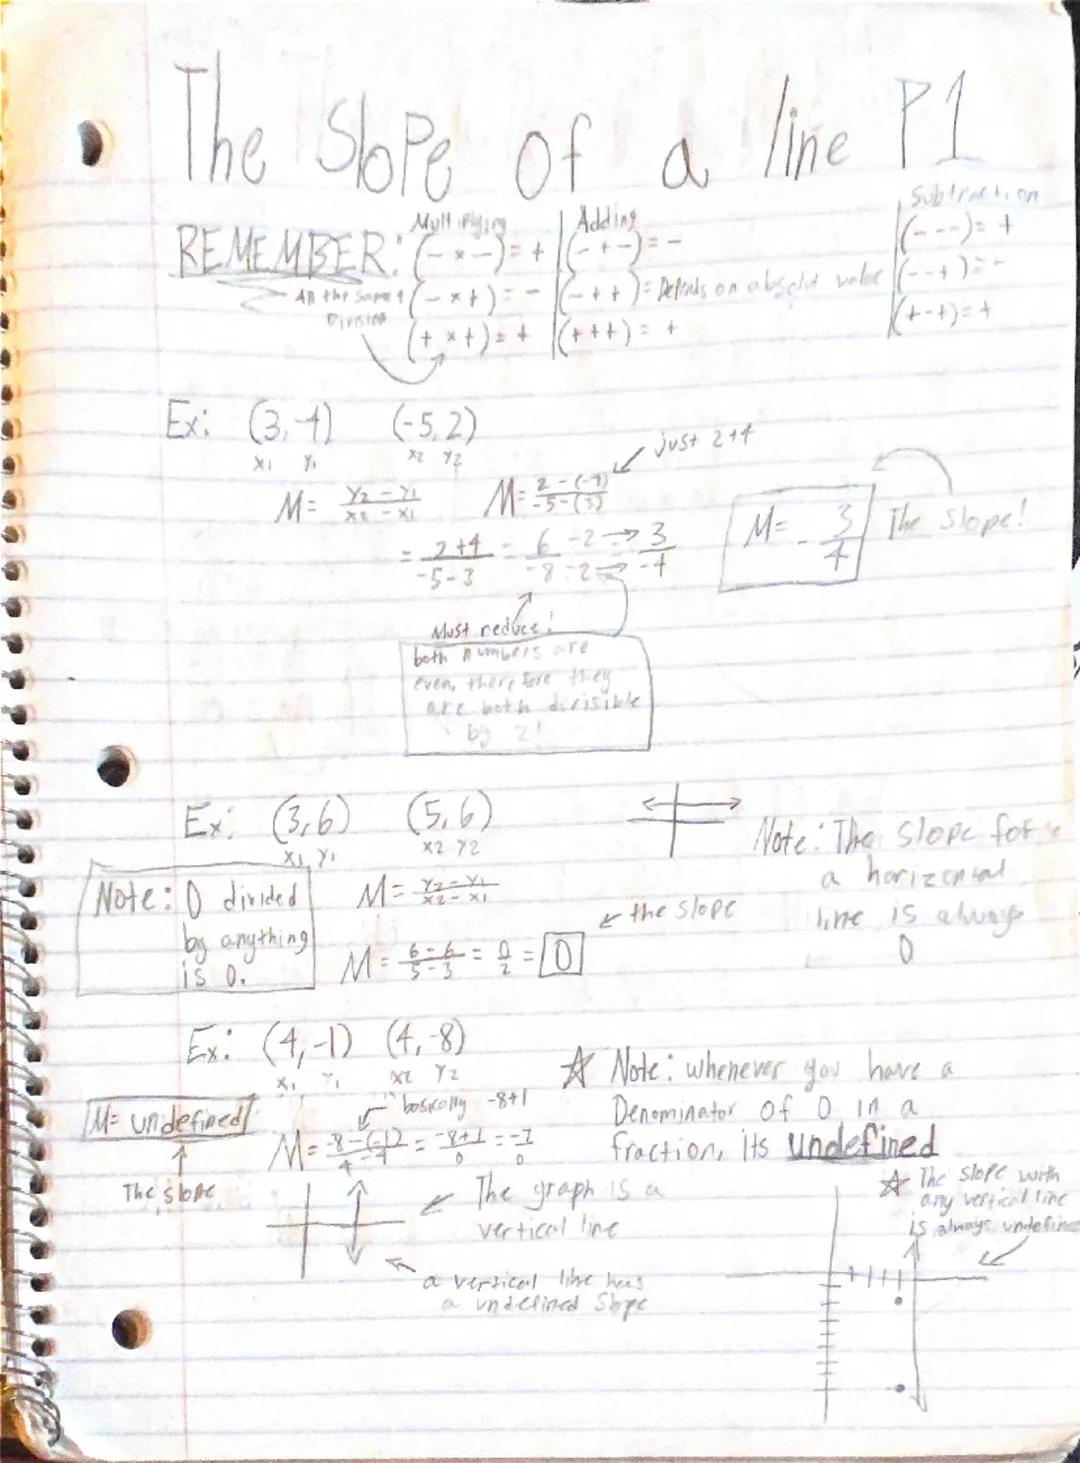 The Slope of a line P1
REMEMBER:
All the same 4
Division
Multiplying
(- x -) = +
(- x +) = -
(+ x +) = +
Adding
(- + -) = -
(- + +) = Depends on absolut value
(+ + +) = +
Subtraction
(- - -) = +
(- - +) = -
(+ - +) = +
Ex: (3,-4) (-5,2)
x1 y1 x2 y2
M = y2 - y1 / x2 - x1
M = 2 - (-4) / -5 - (3)
just 2+4
= 2+4 / -5-3 = 6 / -8 -2 → 3 / -4
M = - 3/4
The Slope!
Must reduce!
both numbers are
even, therefore they
are both divisible
by 2!
Ex: (3,6) (5,6)
x1 y1 x2 y2
Note: The slope for
a horizontal
line is always
0
Note: 0 divided
by anything
is 0.
M = y2 - y1 / x2 - x1
M = 6-6 / 5-3 = 0/2 = 0
the slope
Ex: (4,-1) (4,-8)
x1 y1 x2 y2
M = undefined
The slope
basically -8+1
M = -8-(-1) / 4-4 = -8+1 / 0 = -7 / 0
☆ Note: whenever you have a
Denominator of 0 in a
fraction, its undefined
☆ The slope with
any vertical line
is always undefined
The graph is a
vertical line
a vertical line has
a undefined slope